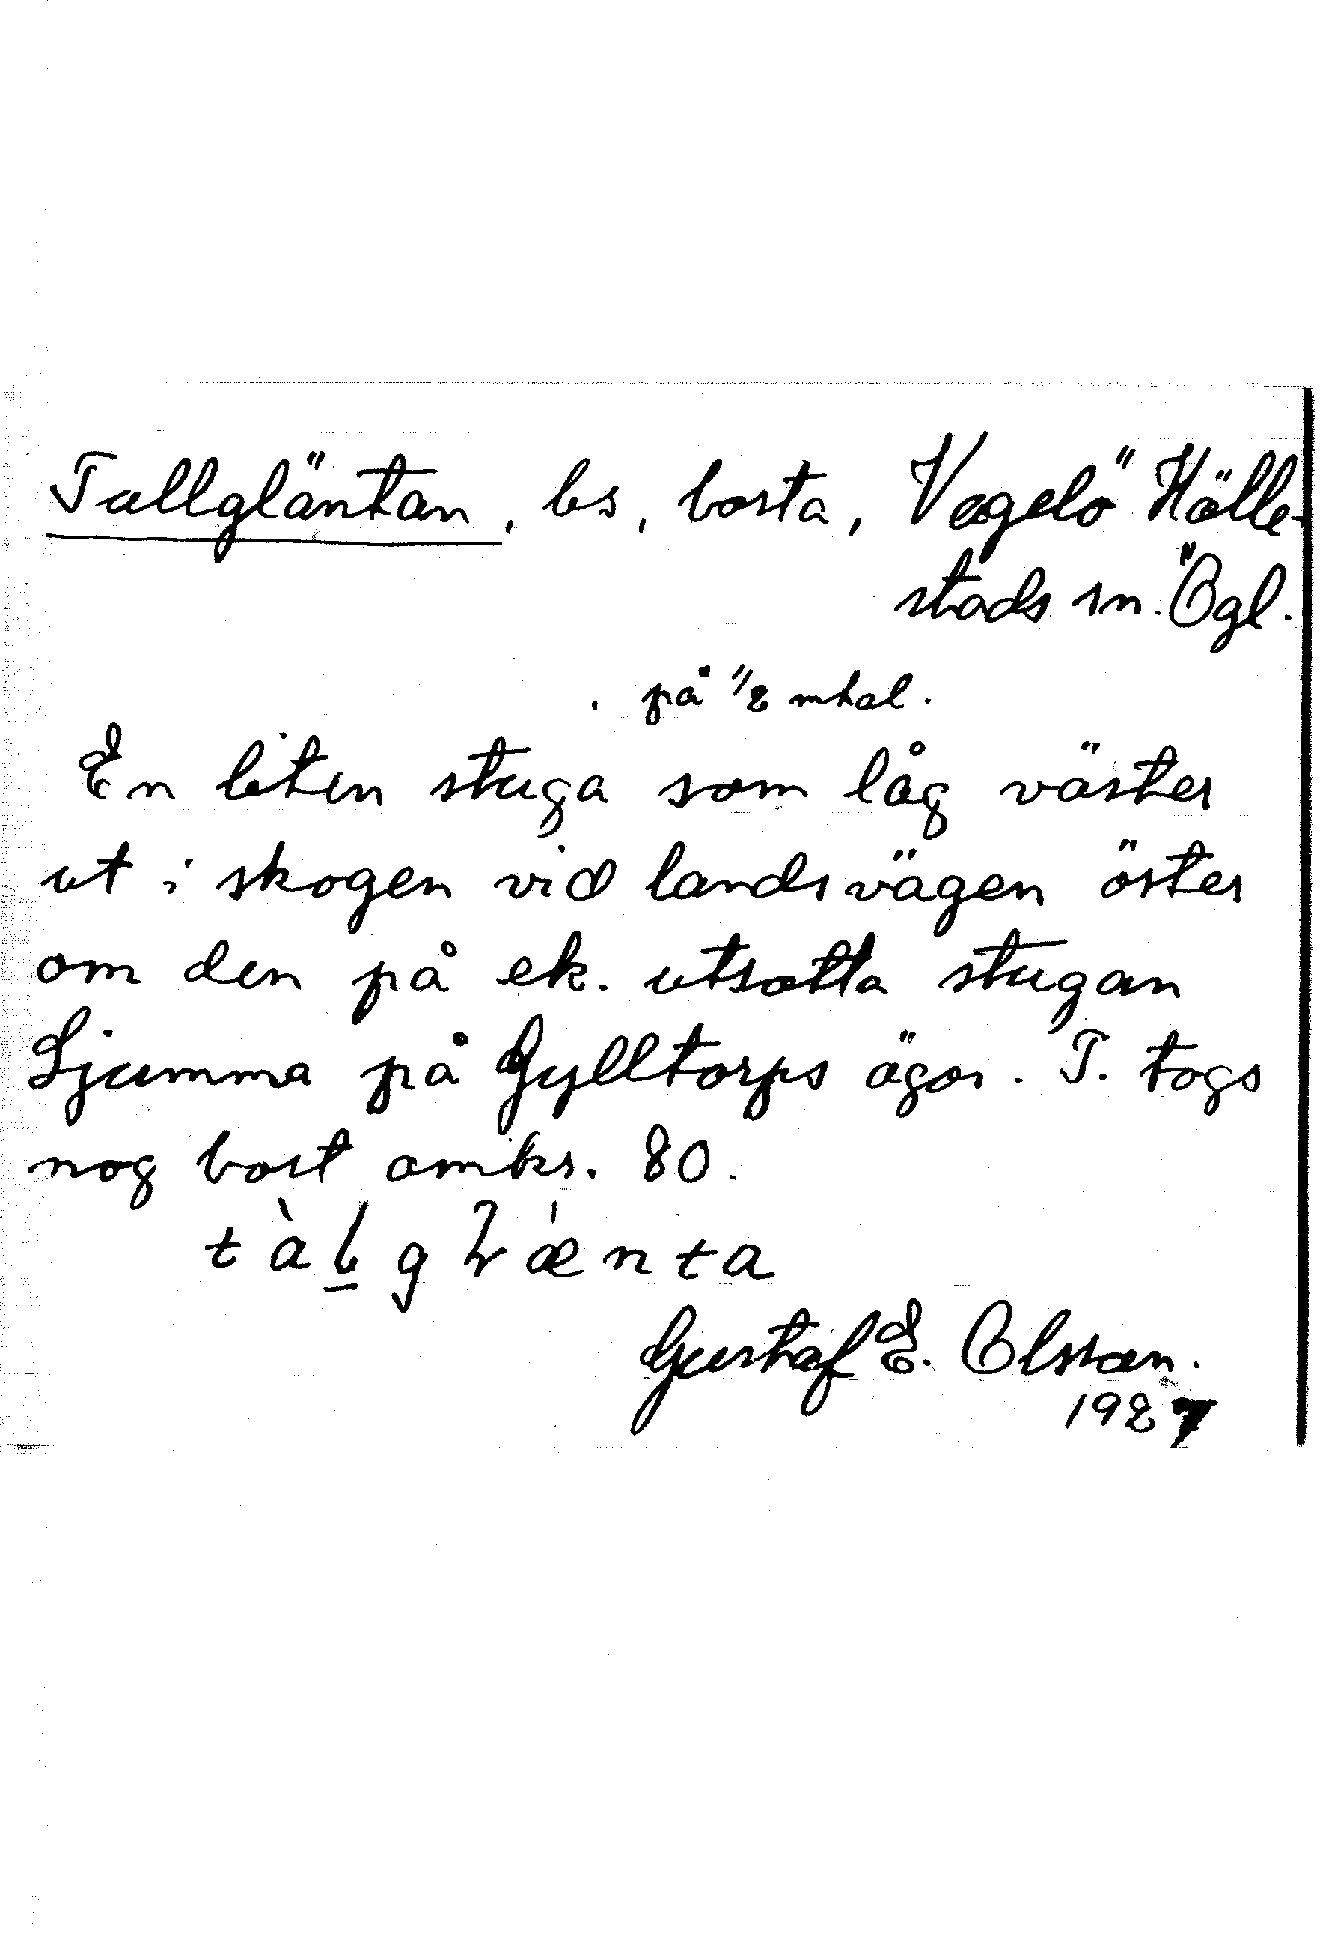 Tallgläntan, bs, borta, Vagelö Hälle-
stads sn. Ögl.
på 1/2 mtal.
En liten stuga som låg väster
ut i skogen vid landsvägen öster
om den på ek. utsatta stugan
Ljumma på Gylltorps ägor. T. togs
nog bort omkr. 80.
tàlglǽnta
Gustaf E. Olsson.
1927